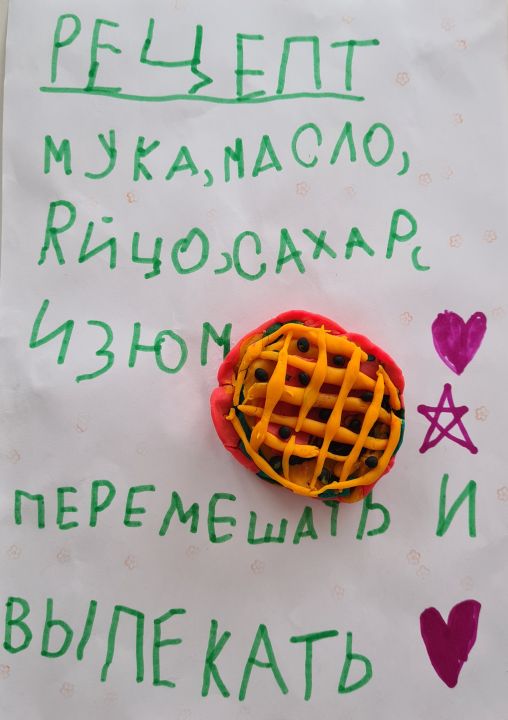 РЕЦЕПТ
МУКА, МАСЛО,
ЯЙЦО, САХАР,
ИЗЮМ
ПЕРЕМЕШАТЬ И
ВЫПЕКАТЬ